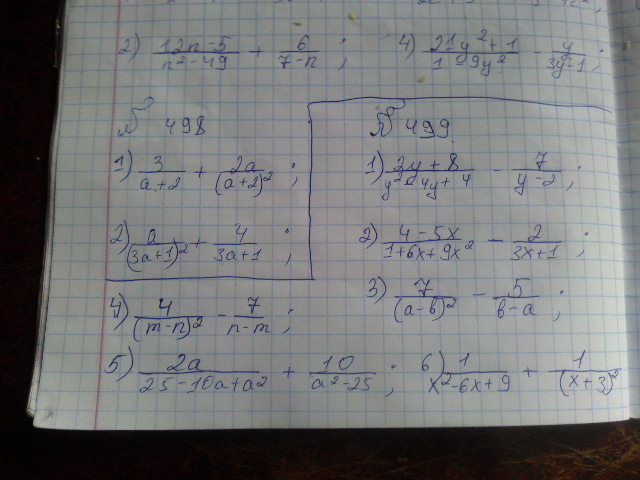 2) (12n-5)/(n²-49) + 6/(7-n);
4) (21y²+1)/(1-9y²) - y/(3y-1);
№ 498
1) 3/(a+2) + 2a/(a+2)²;
2) a/(3a+1)² + 4/(3a+1);
№ 499
1) (3y+8)/(y²-4y+4) - 7/(y-2);
2) (4-5x)/(1+6x+9x²) - 2/(3x+1);
3) 7/(a-b)² - 5/(b-a);
4) 4/(m-n)² - 7/(n-m);
5) 2a/(25-10a+a²) + 10/(a²-25);
6) 1/(x²-6x+9) + 1/(x+3)²